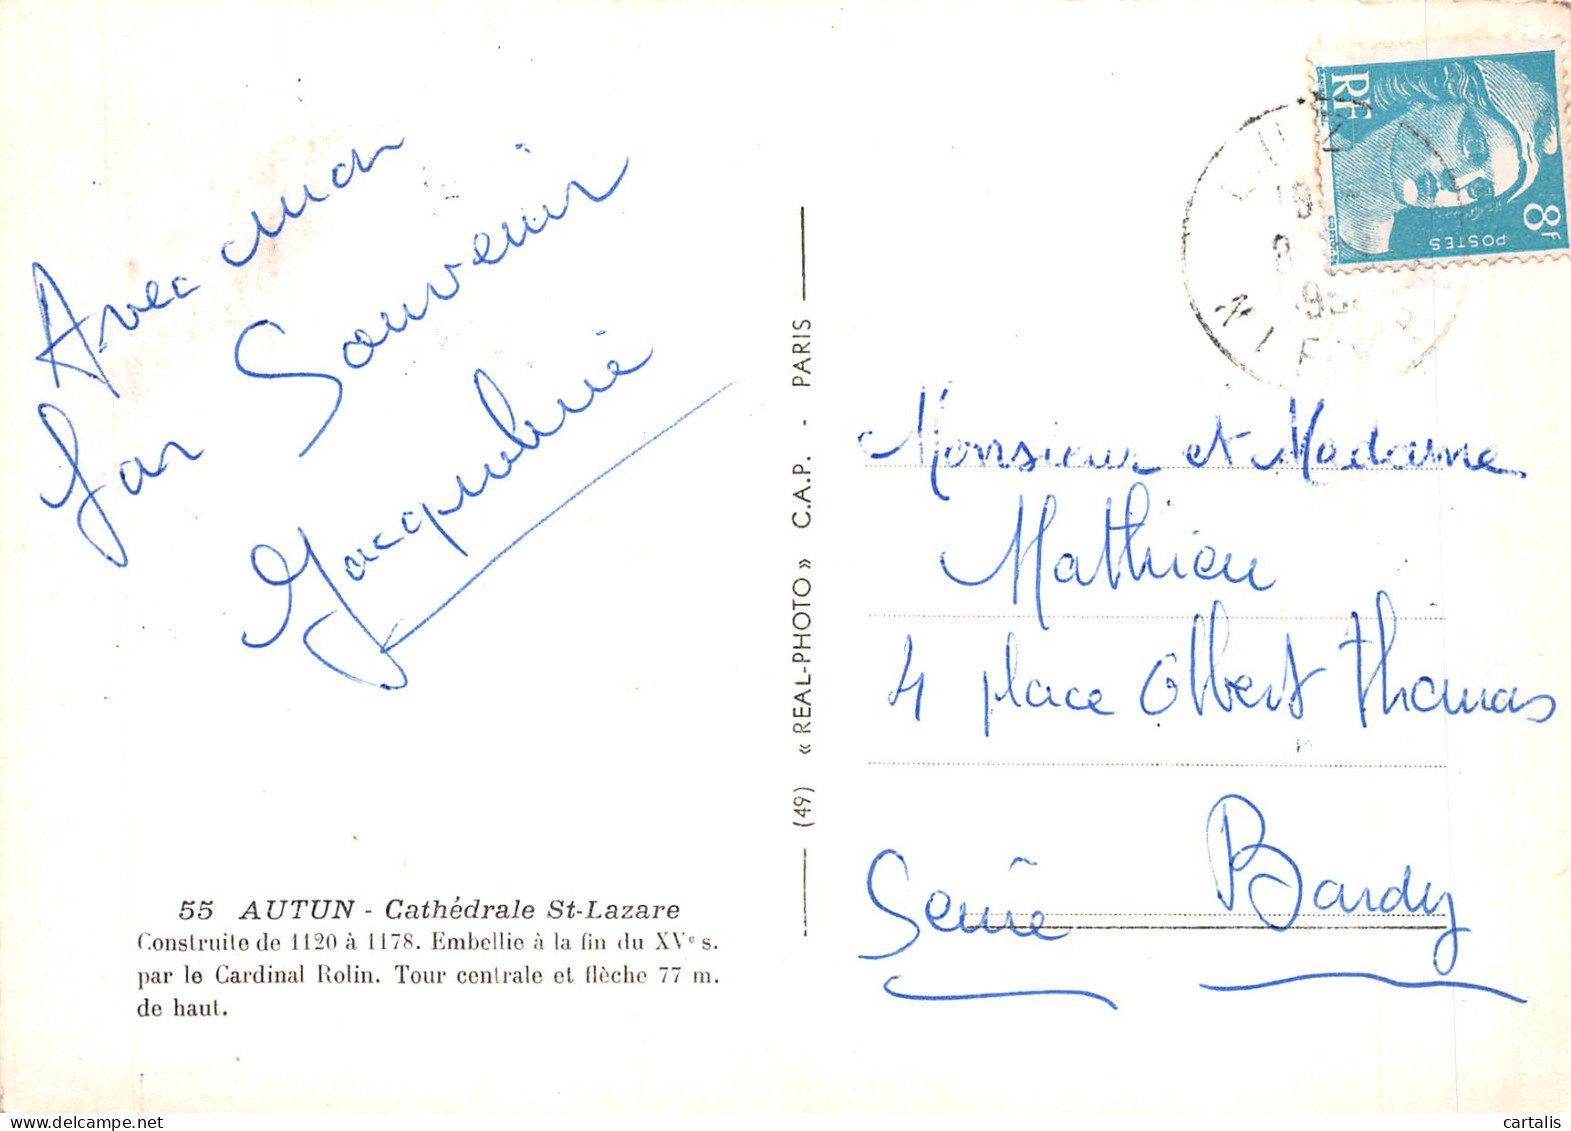 Avec mon
bon Souvenir
Jacqueline
55 AUTUN - Cathédrale St-Lazare
Construite de 1120 à 1178. Embellie à la fin du XVe s.
par le Cardinal Rolin. Tour centrale et flèche 77 m.
de haut.
(49) « REAL-PHOTO » C.A.P. - PARIS
RF
8F
POSTES
Monsieur et Madame
Mathieu
4 place Albert Thomas
Bondy
Seine
cartalis